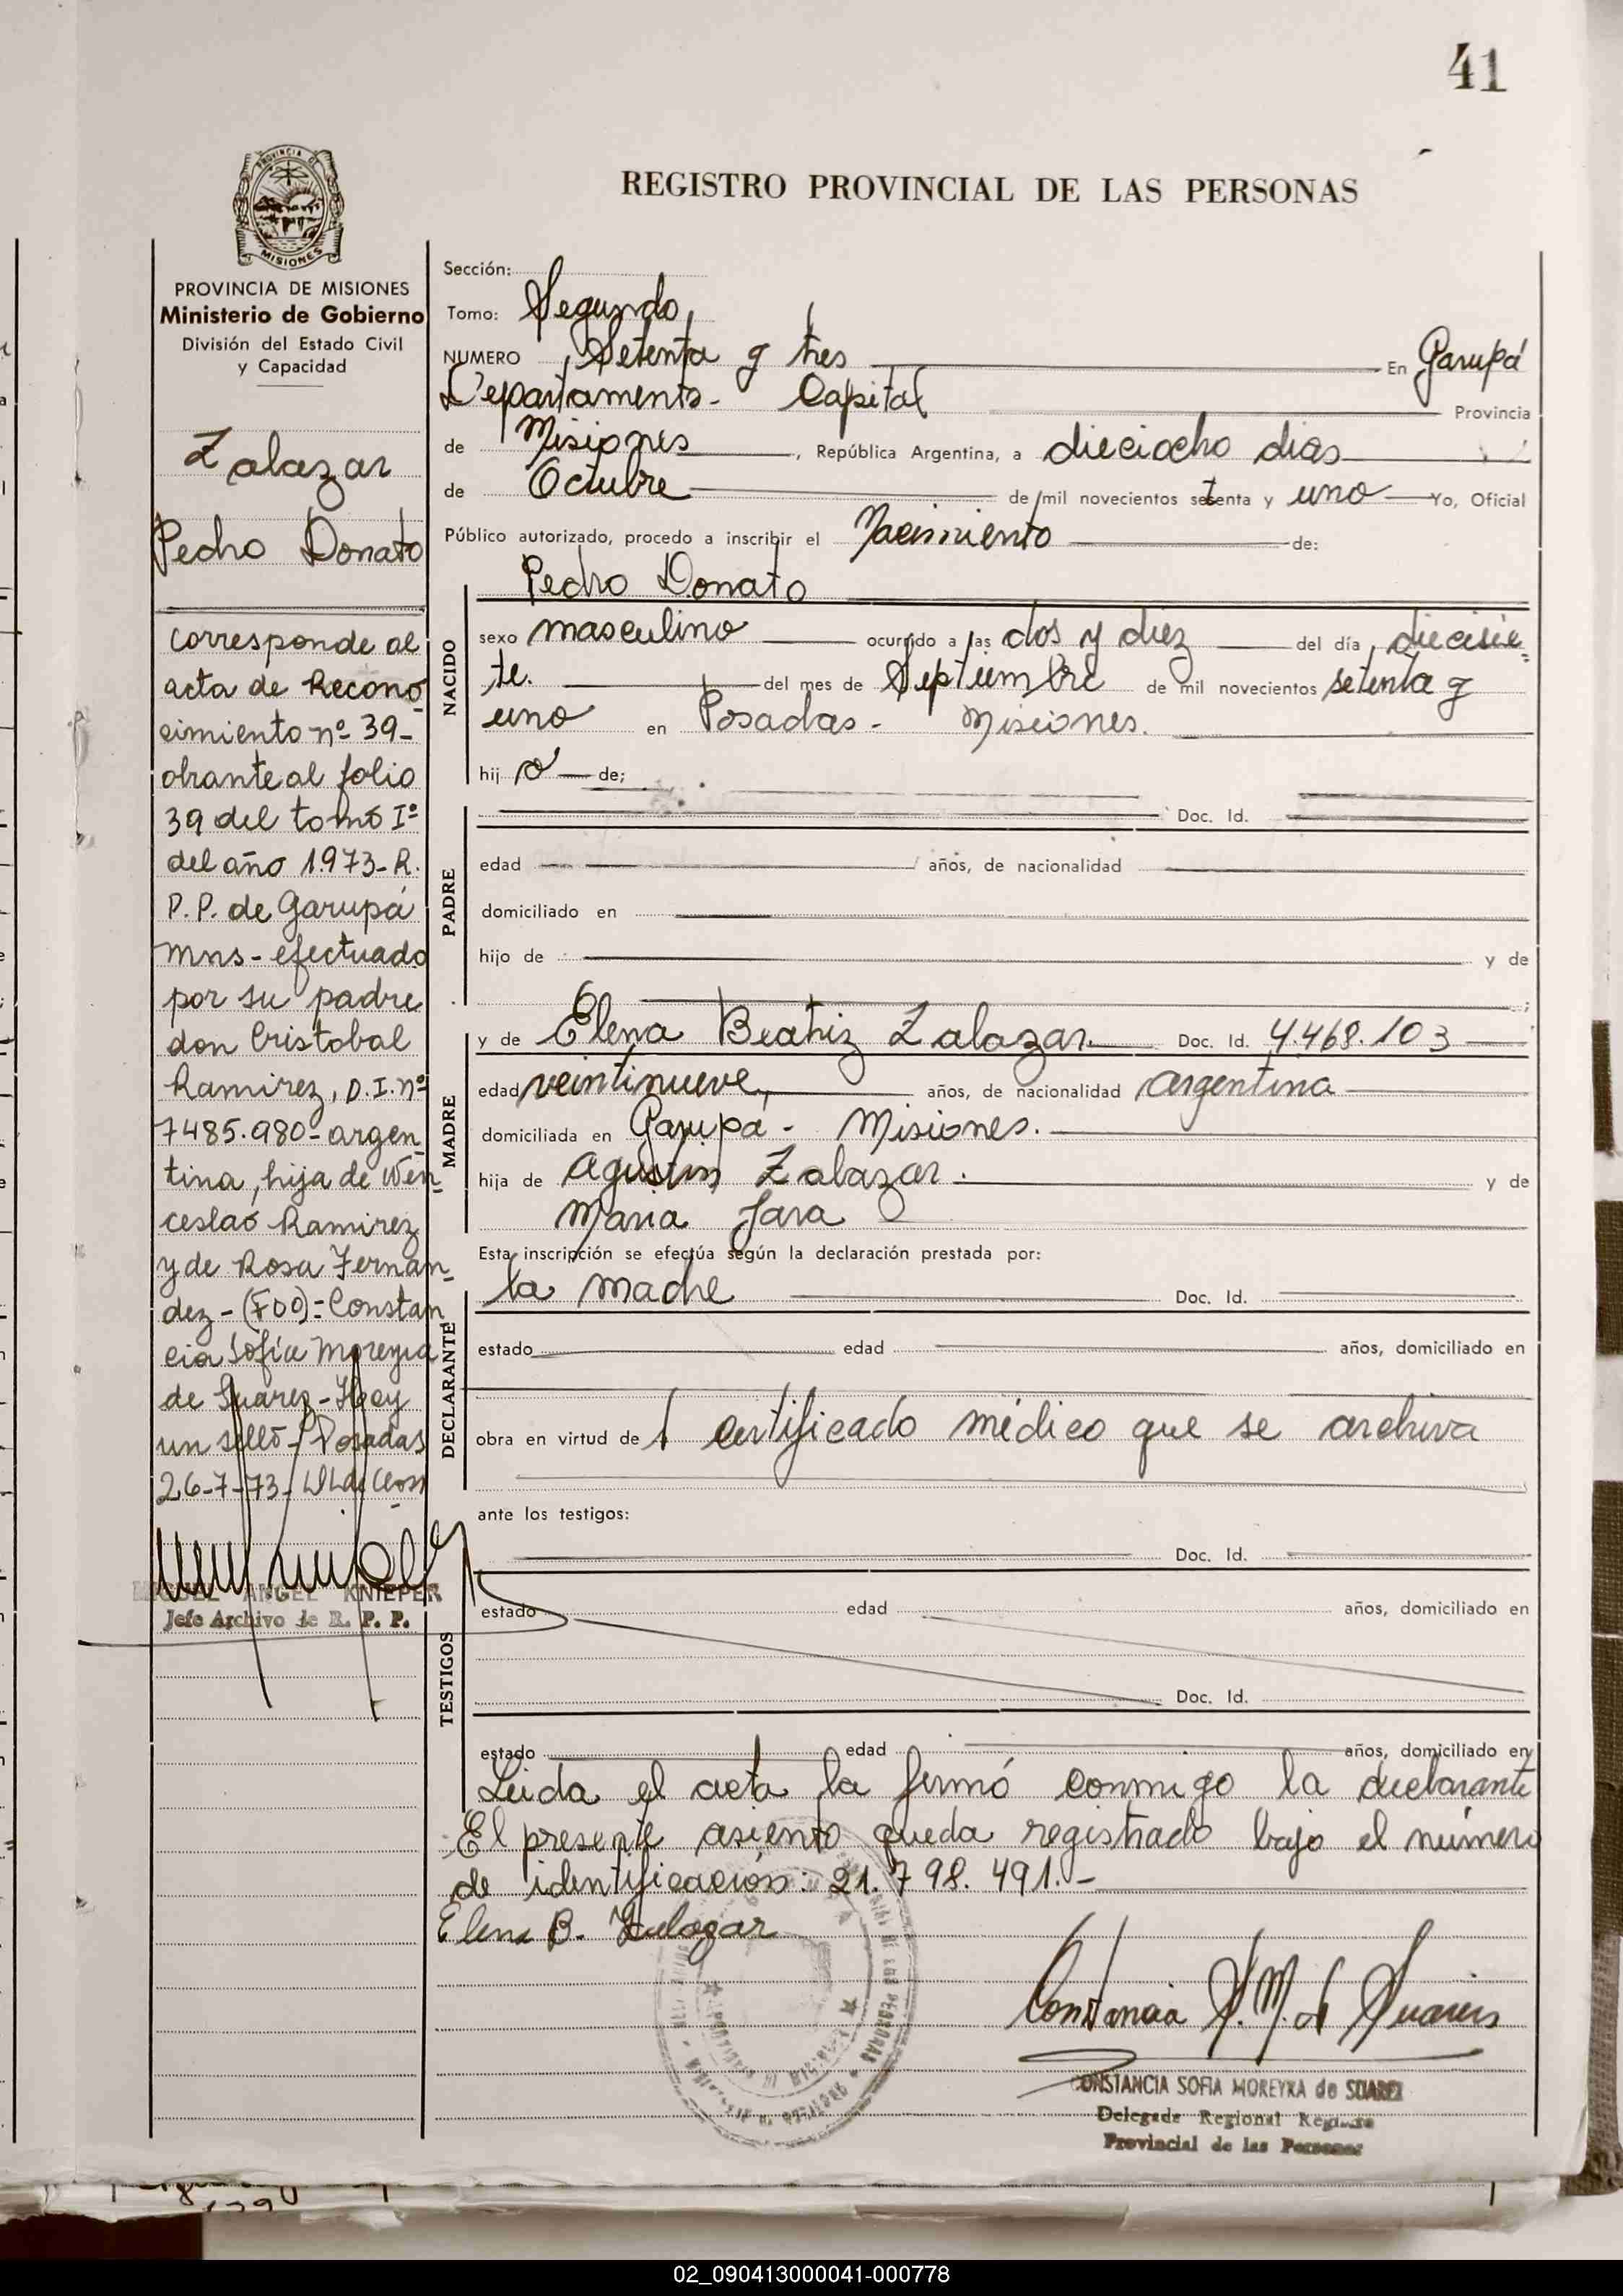 41
REGISTRO PROVINCIAL DE LAS PERSONAS
PROVINCIA DE
MISIONES
PROVINCIA DE MISIONES
Ministerio de Gobierno
División del Estado Civil
y Capacidad
Zalazar
Pedro Donato
corresponde al
acta de Recono
cimiento nº 39-
obrante al folio
39 del tomo Iº
del año 1.973- R.
P.P. de Garupá
Mns- efectuado
por su padre
don Cristobal
Ramirez, D.I. nº
7485.980- argen
tina, hija de Wen
ceslao Ramirez
y de Rosa Fernan
dez - (FDO)- Constan
cia Sofia Moreyra
de Suarez - Hay
un sello - Posadas
26-7-73-
MIGUEL ANGEL KNIEPER
Jefe Archivo de R. P. P.
Sección:
Tomo: Segundo,
NUMERO Setenta y tres En Garupá
Departamento- Capital Provincia
de Misiones, República Argentina, a dieciocho dias
de Octubre de mil novecientos setenta y uno Yo, Oficial
Público autorizado, procedo a inscribir el Nacimiento de:
Pedro Donato
NACIDO
sexo masculino ocurrido a las dos y diez del día diecisie
te. del mes de Septiembre de mil novecientos setenta y
uno en Posadas - Misiones.
hij o de;
Doc. Id.
PADRE
edad años, de nacionalidad
domiciliado en
hijo de y de
;
MADRE
y de Elena Beatriz Zalazar. Doc. Id. 4.468.103
edad veintinueve, años, de nacionalidad argentina
domiciliada en Garupá - Misiones.
hija de Agustin Zalazar. y de
Maria Jara
Esta inscripción se efectúa según la declaración prestada por:
DECLARANTE
la madre Doc. Id.
estado edad años, domiciliado en
obra en virtud de 1 certificado médico que se archiva
ante los testigos:
TESTIGOS
Doc. Id.
estado edad años, domiciliado en
Doc. Id.
estado edad años, domiciliado en
Leida el acta la firmó conmigo la declarante
El presente asiento queda registrado bajo el número
de identificación: 21.798.491.-
Elena B. Zalazar
Constancia S. M. d Suarez
CONSTANCIA SOFIA MOREYRA de SUAREZ
Delegada Regional Registro
Provincial de las Personas
02_090413000041-000778